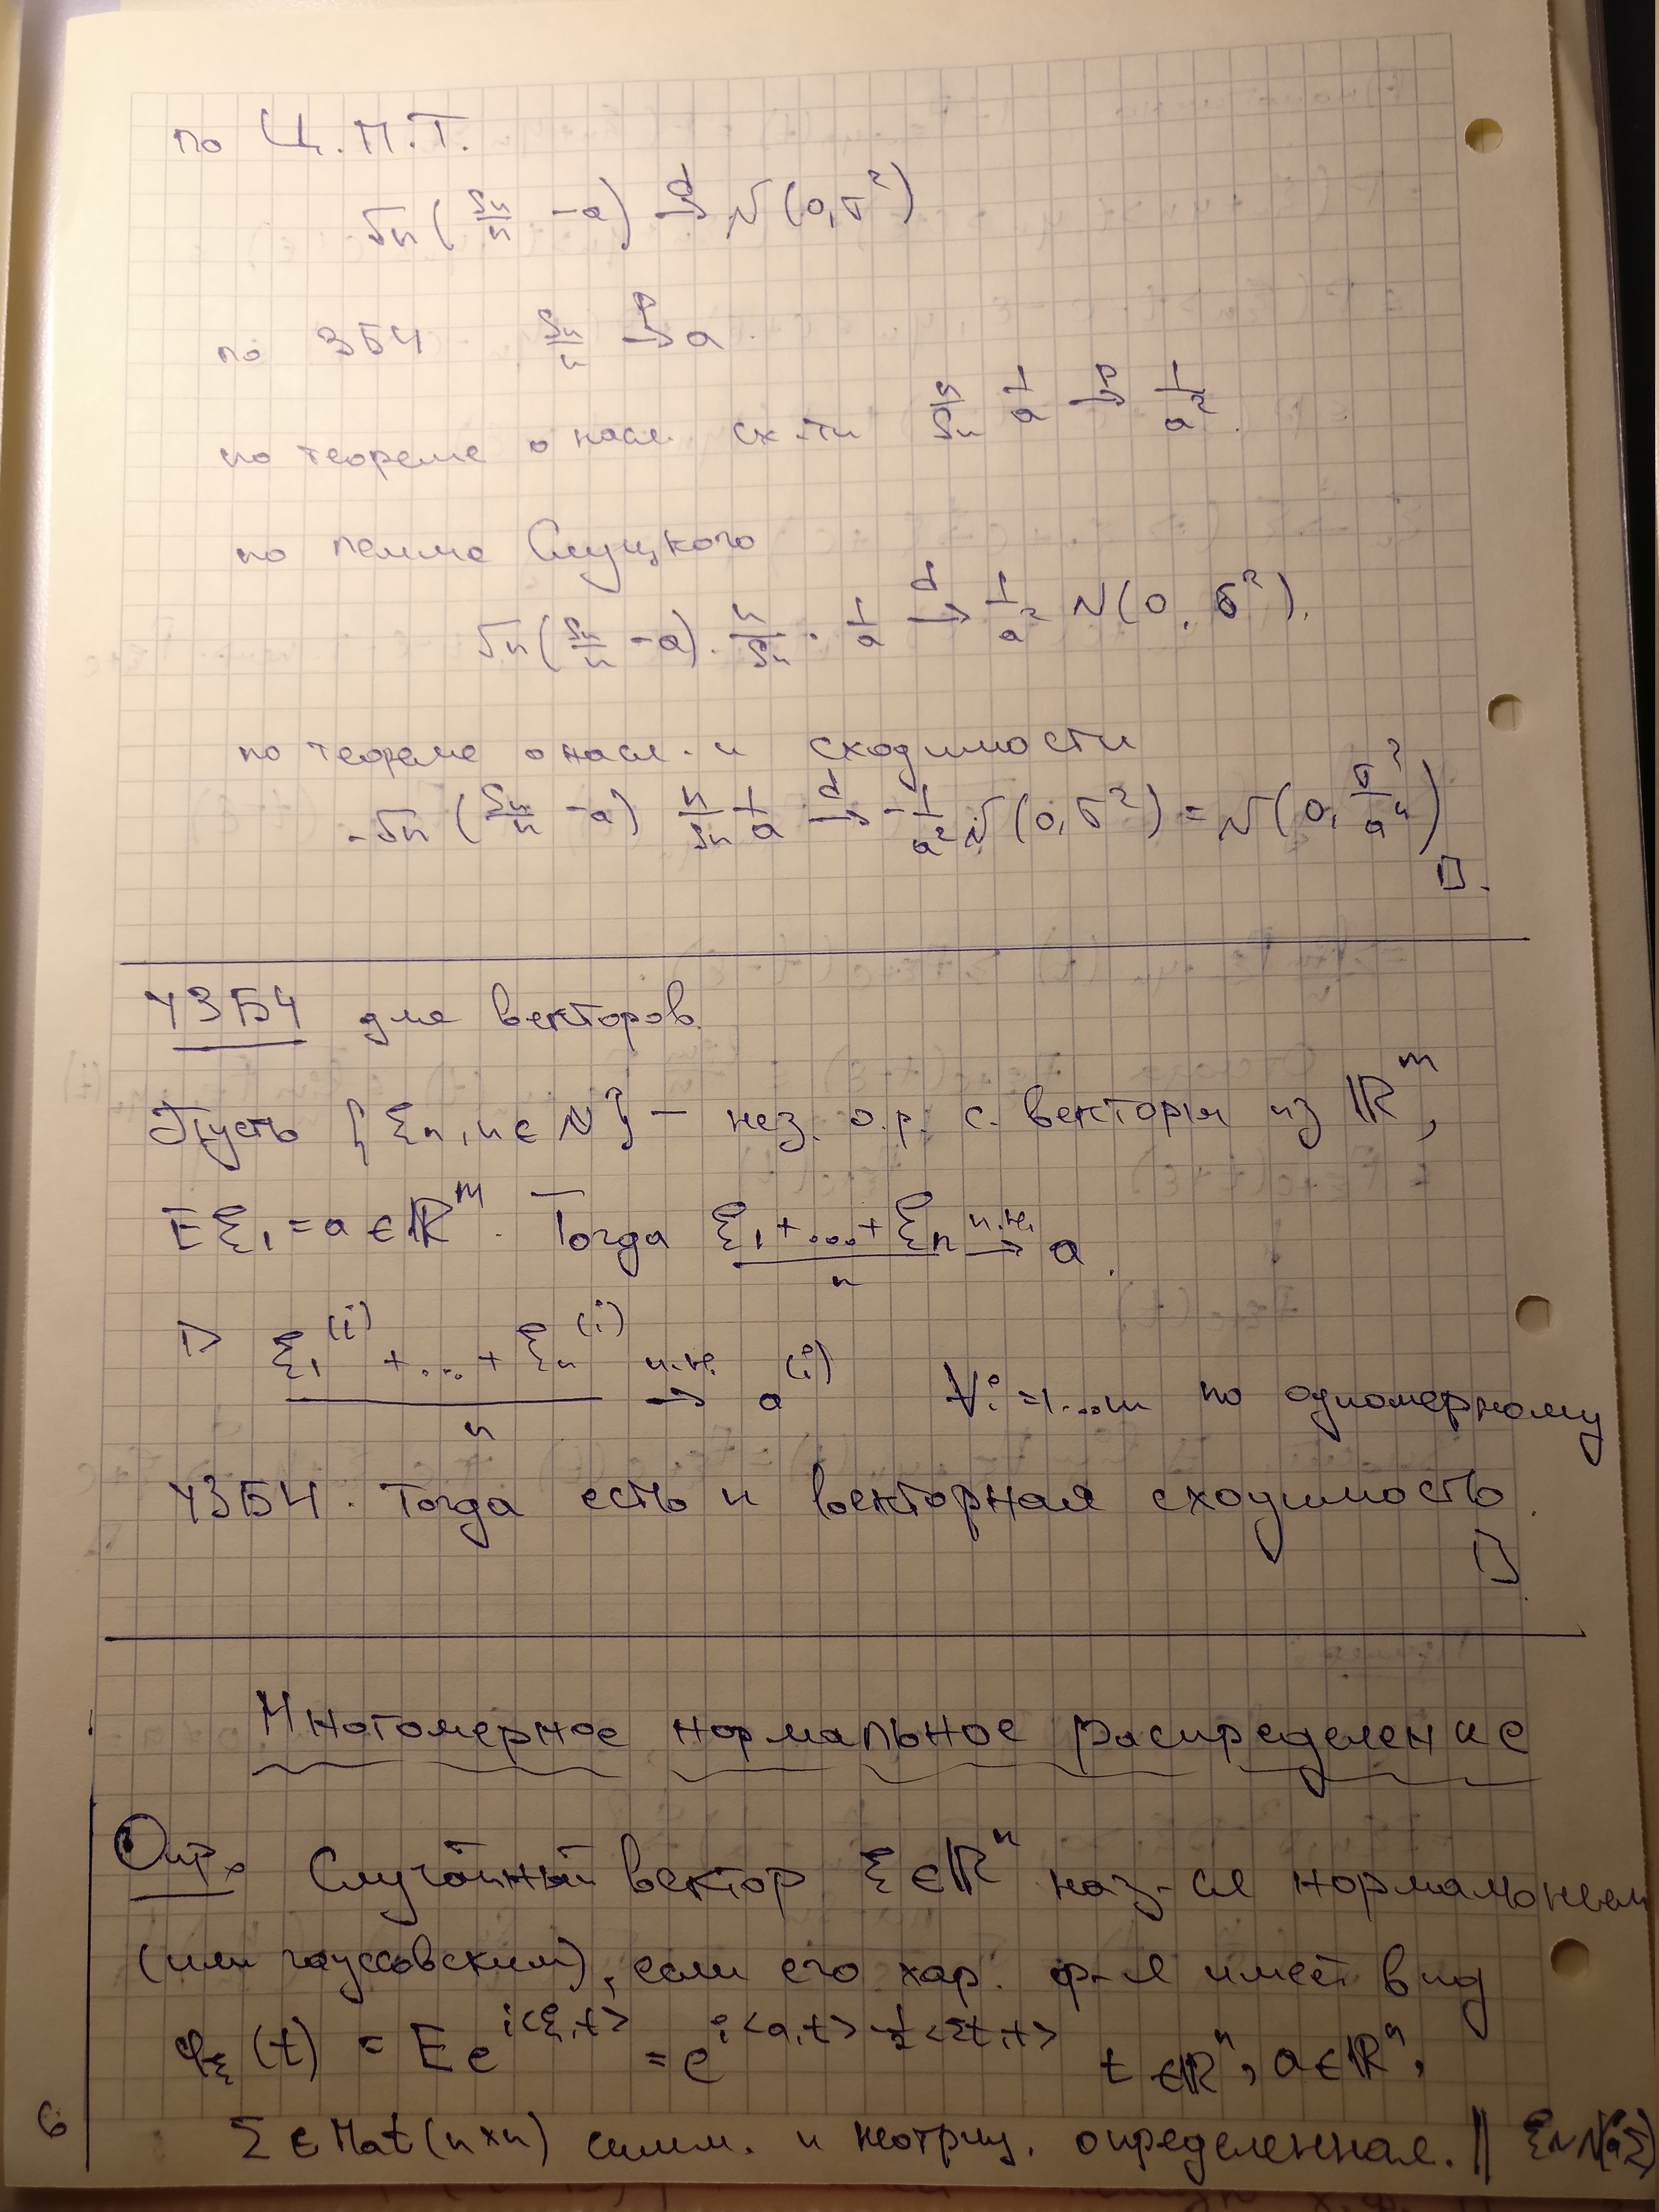 по Ц.П.Т.
√n (Sn/n − a) →d N(0, σ²)
по ЗБЧ Sn/n →P a.
по теореме о насл. сх-ти n/Sn 1/a →P 1/a².
по лемме Слуцкого
√n(Sn/n − a) · n/Sn · 1/a →d 1/a² N(0, σ²).
по теореме о насл-и сходимости
−√n (Sn/n − a) n/Sn 1/a →d −1/a² N(0, σ²) = N(0, σ²/a⁴)
□.
УЗБЧ для векторов.
Пусть {ξn, n ∈ N} — нез. о.р. с. векторы из ℝ^m,
Eξ₁ = a ∈ ℝ^m. Тогда (ξ₁ + ... + ξn)/n →п.н. a.
▷ (ξ₁^(i) + ... + ξn^(i))/n →п.н. a^(i) ∀i = 1...m по одномерному
УЗБЧ. Тогда есть и векторная сходимость.
□
Многомерное нормальное распределение
Опр. Случайный вектор ξ ∈ ℝ^n наз-ся нормальным
(или гауссовским), если его хар. ф-я имеет вид
φξ(t) = E e^{i<ξ,t>} = e^{i<a,t> − ½<Σt,t>} t ∈ ℝ^n, a ∈ ℝ^n,
6 Σ ∈ Mat(n×n) симм. и неотриц. определенная. || ξ ~ N(a, Σ)